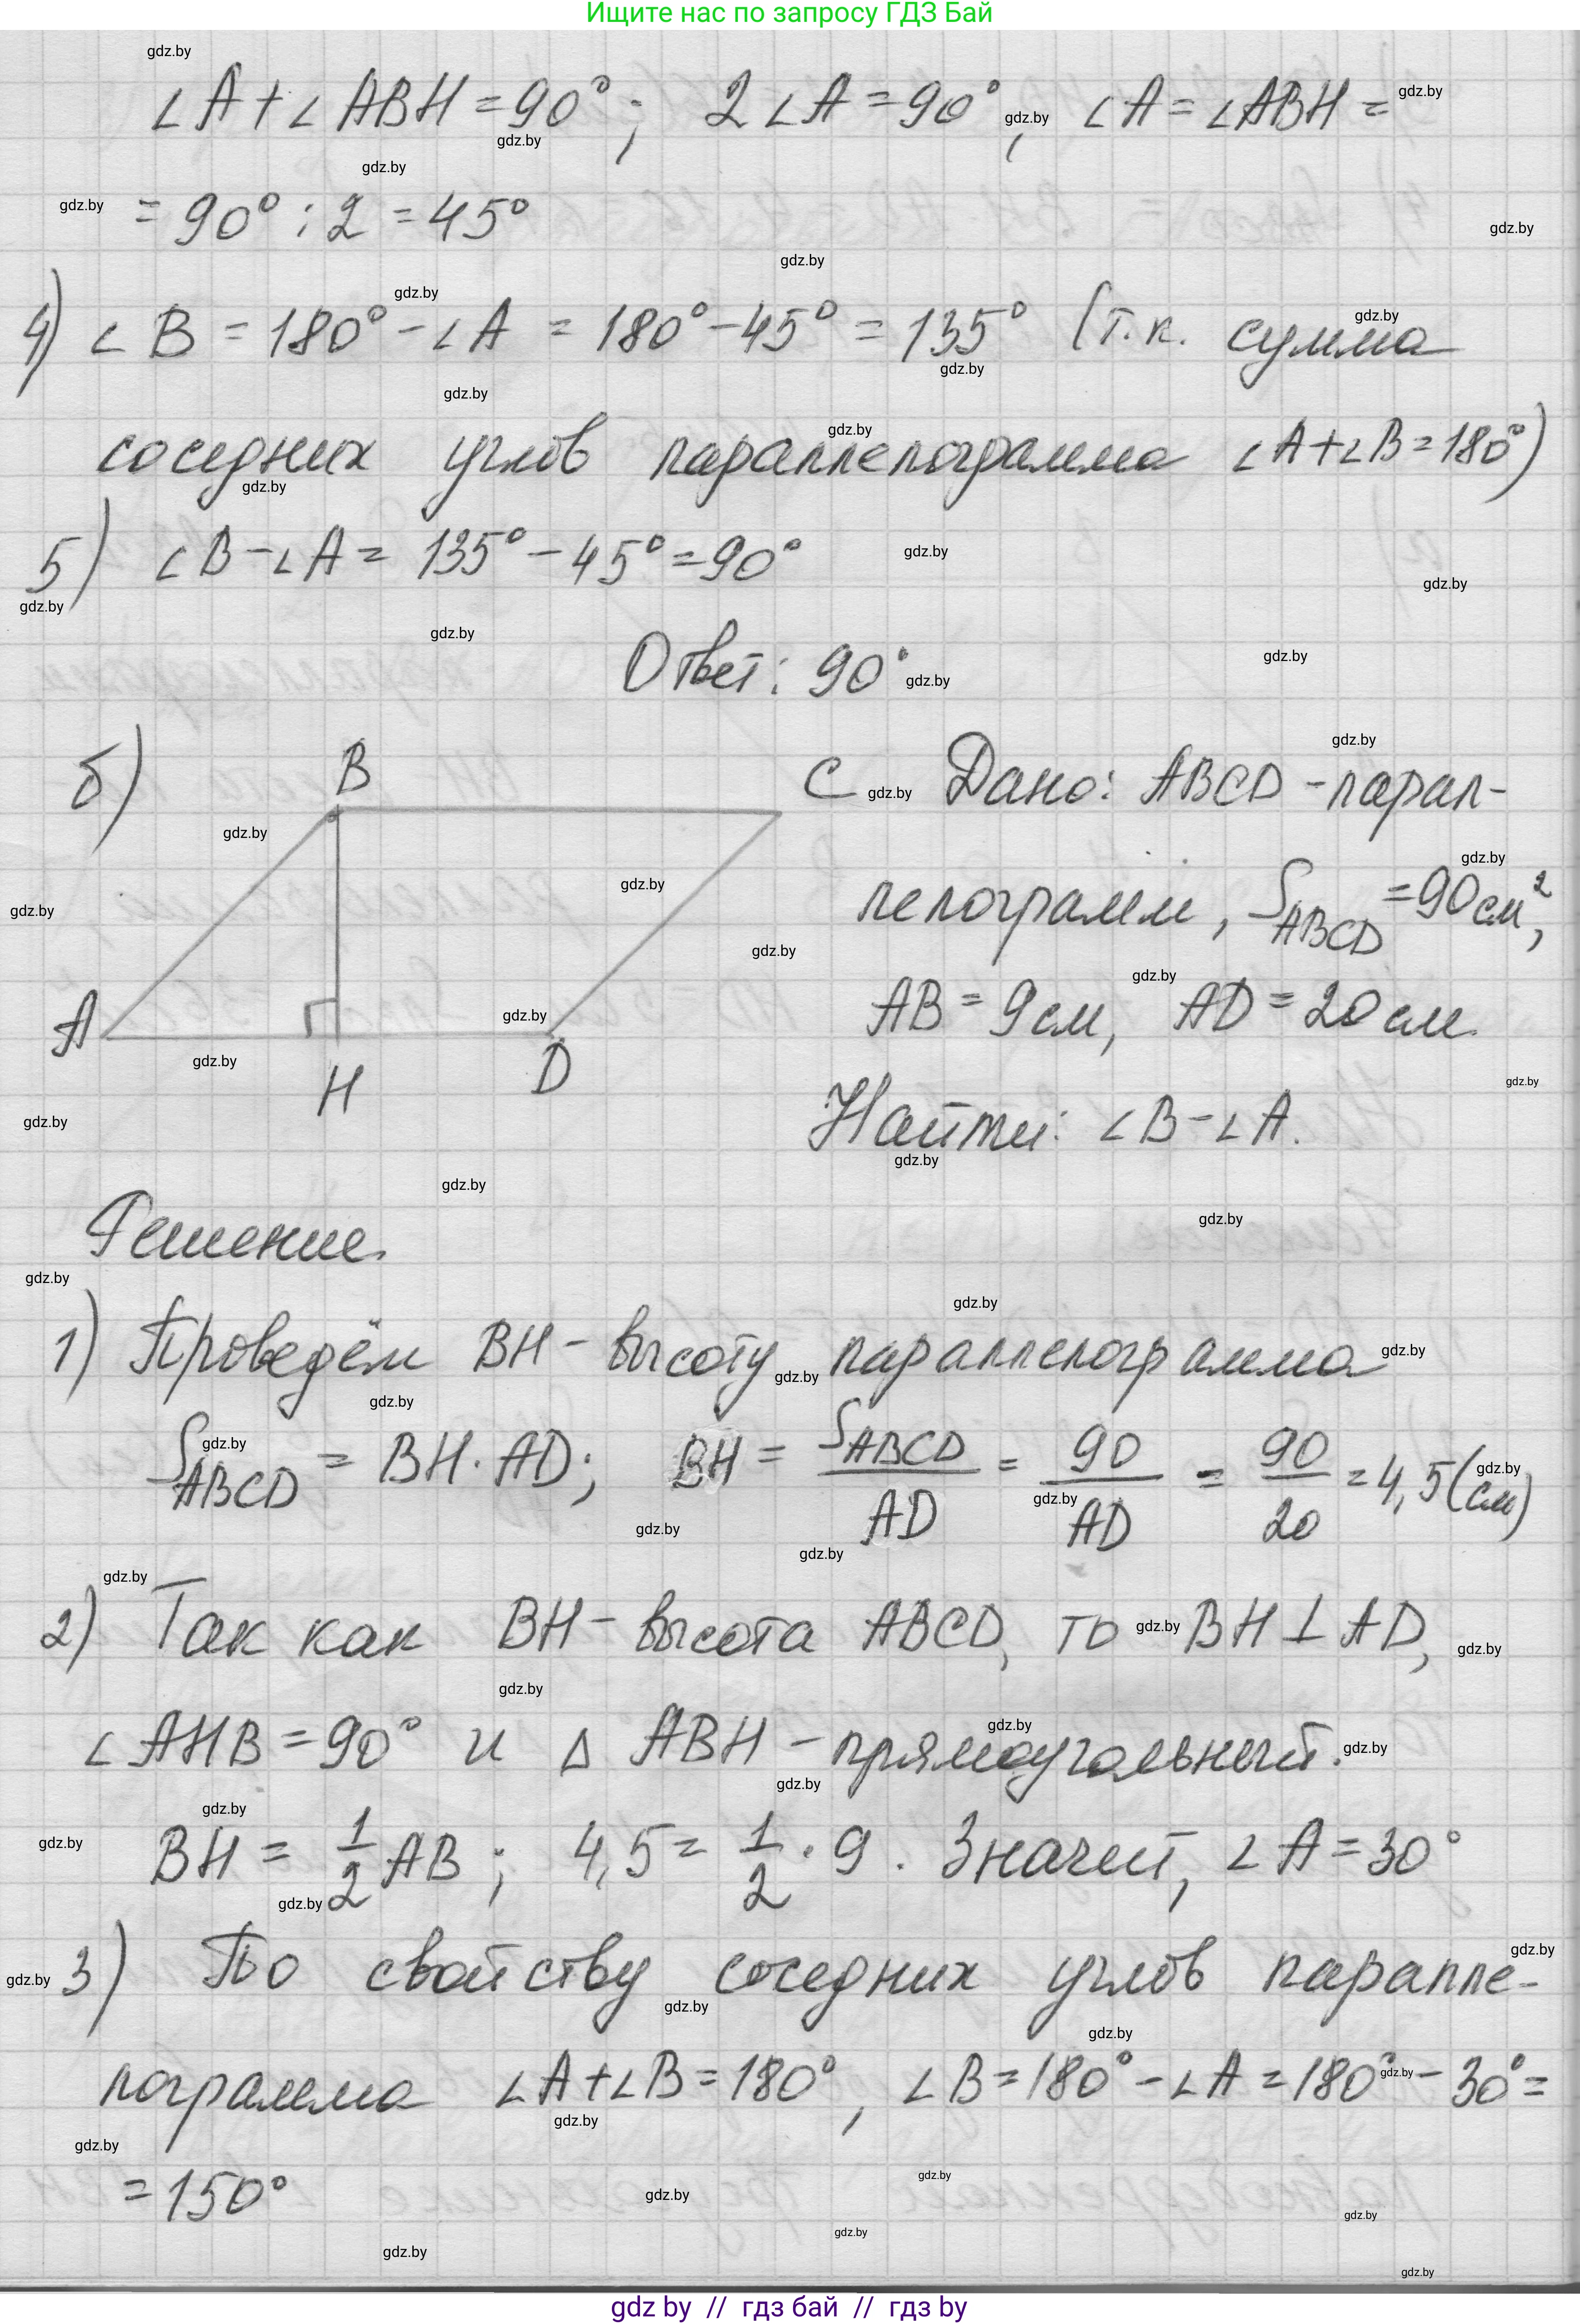 Ищите нас по запросу ГДЗ Бай
∠A+∠ABH=90°; 2∠A=90°, ∠A=∠ABH=
=90°:2=45°
4) ∠B=180°-∠A=180°-45°=135° (т.к. сумма
соседних углов параллелограмма ∠A+∠B=180°)
5) ∠B-∠A=135°-45°=90°
Ответ: 90°
б)
B
C
A
H
D
Дано: ABCD-парал-
лелограмм, S_ABCD=90см²,
AB=9см, AD=20см.
Найти: ∠B-∠A.
Решение.
1) Проведём BH-высоту параллелограмма
S_ABCD=BH·AD; BH=S_ABCD/AD=90/AD=90/20=4,5(см)
2) Так как BH-высота ABCD, то BH⊥AD,
∠AHB=90° и △ABH-прямоугольный.
BH=1/2AB; 4,5=1/2·9. Значит, ∠A=30°
3) По свойству соседних углов паралле-
лограмма ∠A+∠B=180°, ∠B=180°-∠A=180°-30°=
=150°
gdz by // гдз бай // гдз by